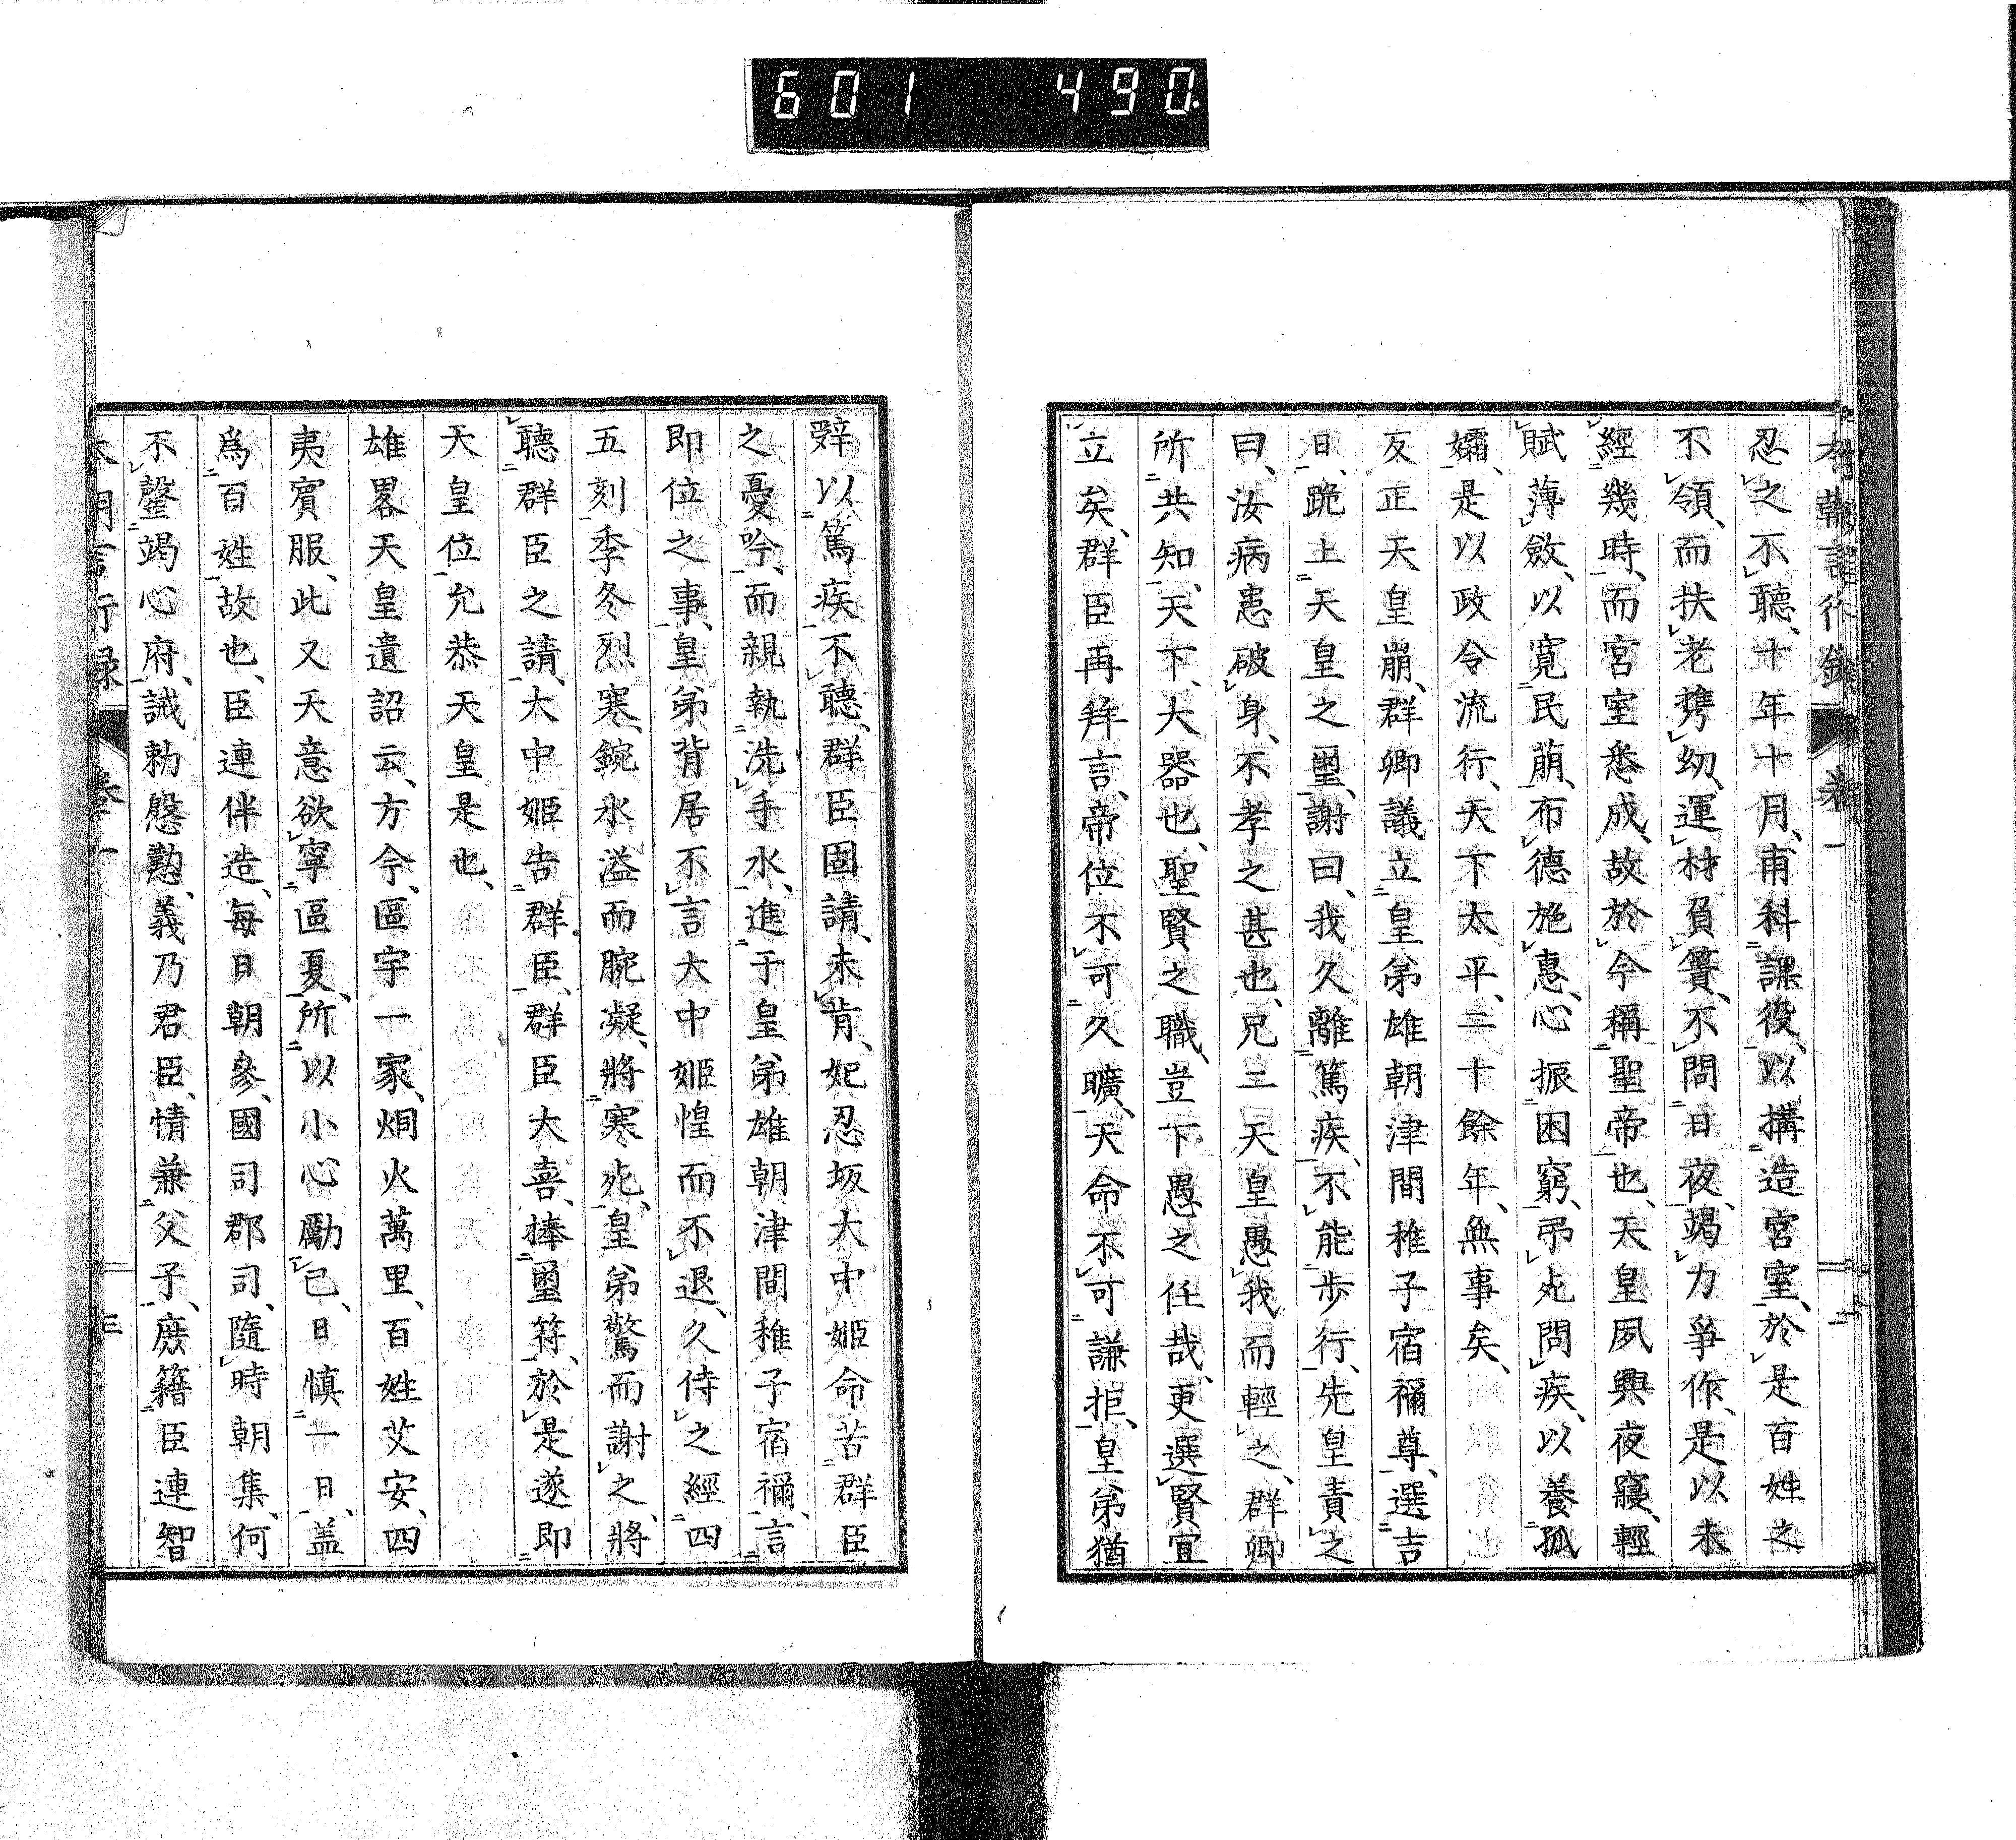 601 490
本朝言行録 卷一 二
忍之不聽、十年十月、甫科課役、以搆造宮室、於是百姓之
不領、而扶老携幼、運材負簣、不問日夜、竭力爭作、是以未
經幾時、而宮室悉成、故於今稱聖帝也、天皇夙興夜寢、輕
賦薄斂、以寬民萠、布德施惠、心振困窮、弔死問疾、以養孤
孀、是以政令流行、天下太平、二十餘年、無事矣、
反正天皇崩、群卿議立皇弟雄朝津間稚子宿禰尊、選吉
日、跪上天皇之璽、謝曰、我久離篤疾、不能步行、先皇責之
曰、汝病患破身、不孝之甚也、兄二天皇愚我而輕之、群卿
所共知、天下、大器也、聖賢之職、豈下愚之任哉、更選賢宜
立矣、群臣再拜言、帝位不可久曠、天命不可謙拒、皇弟猶
辭以篤疾、不聽、群臣固請、未肯、妃忍坂大中姬命苦群臣
之憂吟、而親執洗手水、進于皇弟雄朝津間稚子宿禰、言
即位之事、皇弟背居不言、大中姬惶而不退、久侍之經四
五刻、季冬烈寒、鋺水溢而腕凝、將寒死、皇弟驚而謝之、將
聽群臣之請、大中姬告群臣、群臣大喜、捧璽符、於是遂即
天皇位、允恭天皇是也、
雄畧天皇遺詔云、方今、區宇一家、烟火萬里、百姓艾安、四
夷賓服、此又天意欲寧區夏、所以小心勵已、日愼一日、盖
爲百姓故也、臣連伴造、每日朝參、國司郡司、隨時朝集、何
不罄竭心府、誡勅慇懃、義乃君臣、情兼父子、庶籍臣連智
本朝言行録 卷一 三